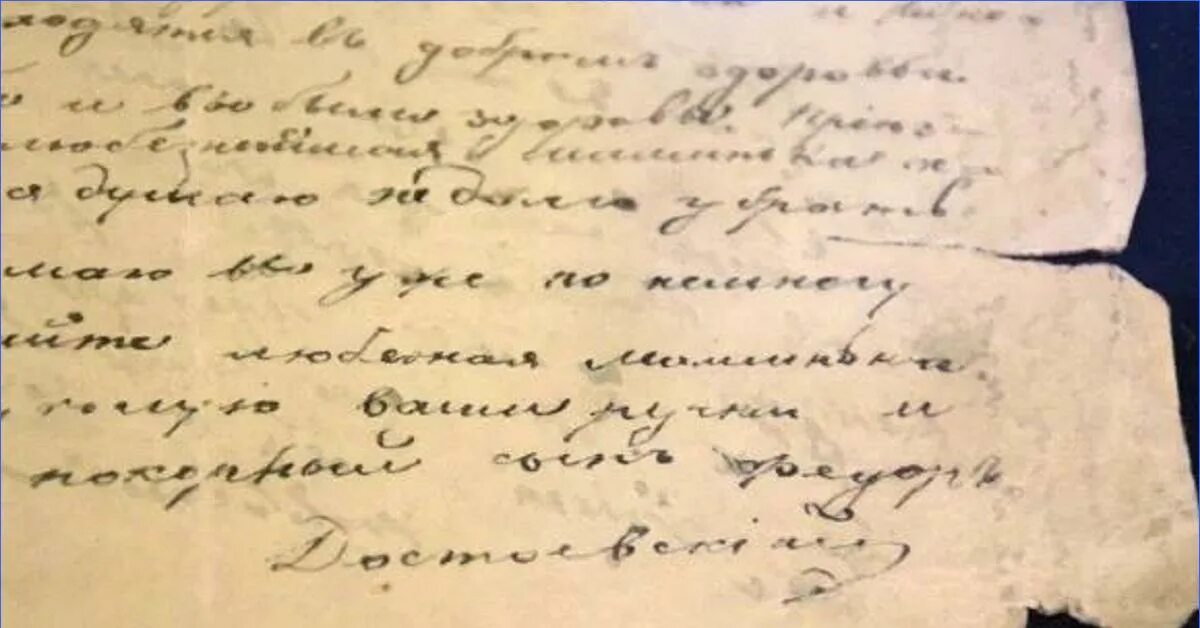 ходятся въ добромъ здоровьи.
и вы были здоровы.
любезнейшая маминька
я думаю надоли убрать
маю все уже по немногу
айте любезная маминька.
цолую ваши ручки и
покорный сынъ Федоръ
Достоевскій